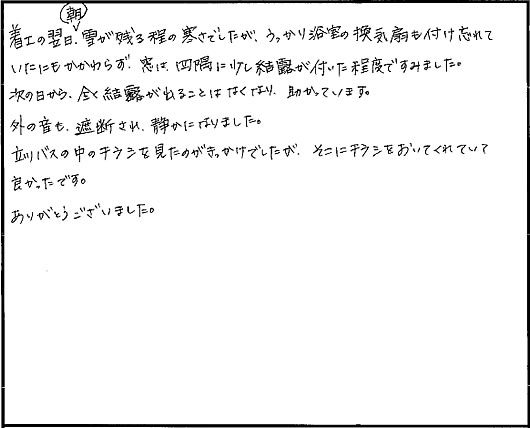 着工の翌日朝、雪が残る程の寒さでしたが、うっかり浴室の換気扇も付け忘れて
いたにもかかわらず、窓は、四隅に少し結露が付いた程度ですみました。
次の日から、全く結露が出ることはなくなり、助かっています。
外の音も、遮断され、静かになりました。
立川バスの中のチラシを見たのがきっかけでしたが、そこにチラシをおいてくれていて
良かったです。
ありがとうございました。